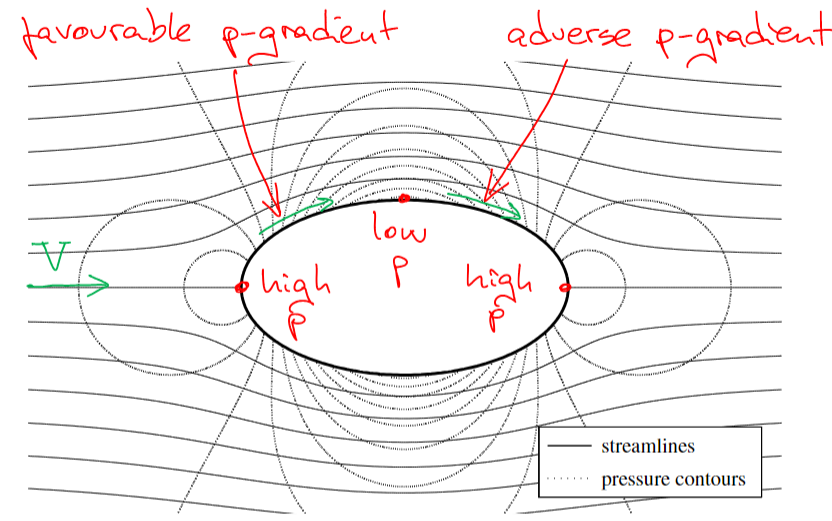 favourable p-gradient
adverse p-gradient
V
low
p
high
p
high
p
streamlines
pressure contours